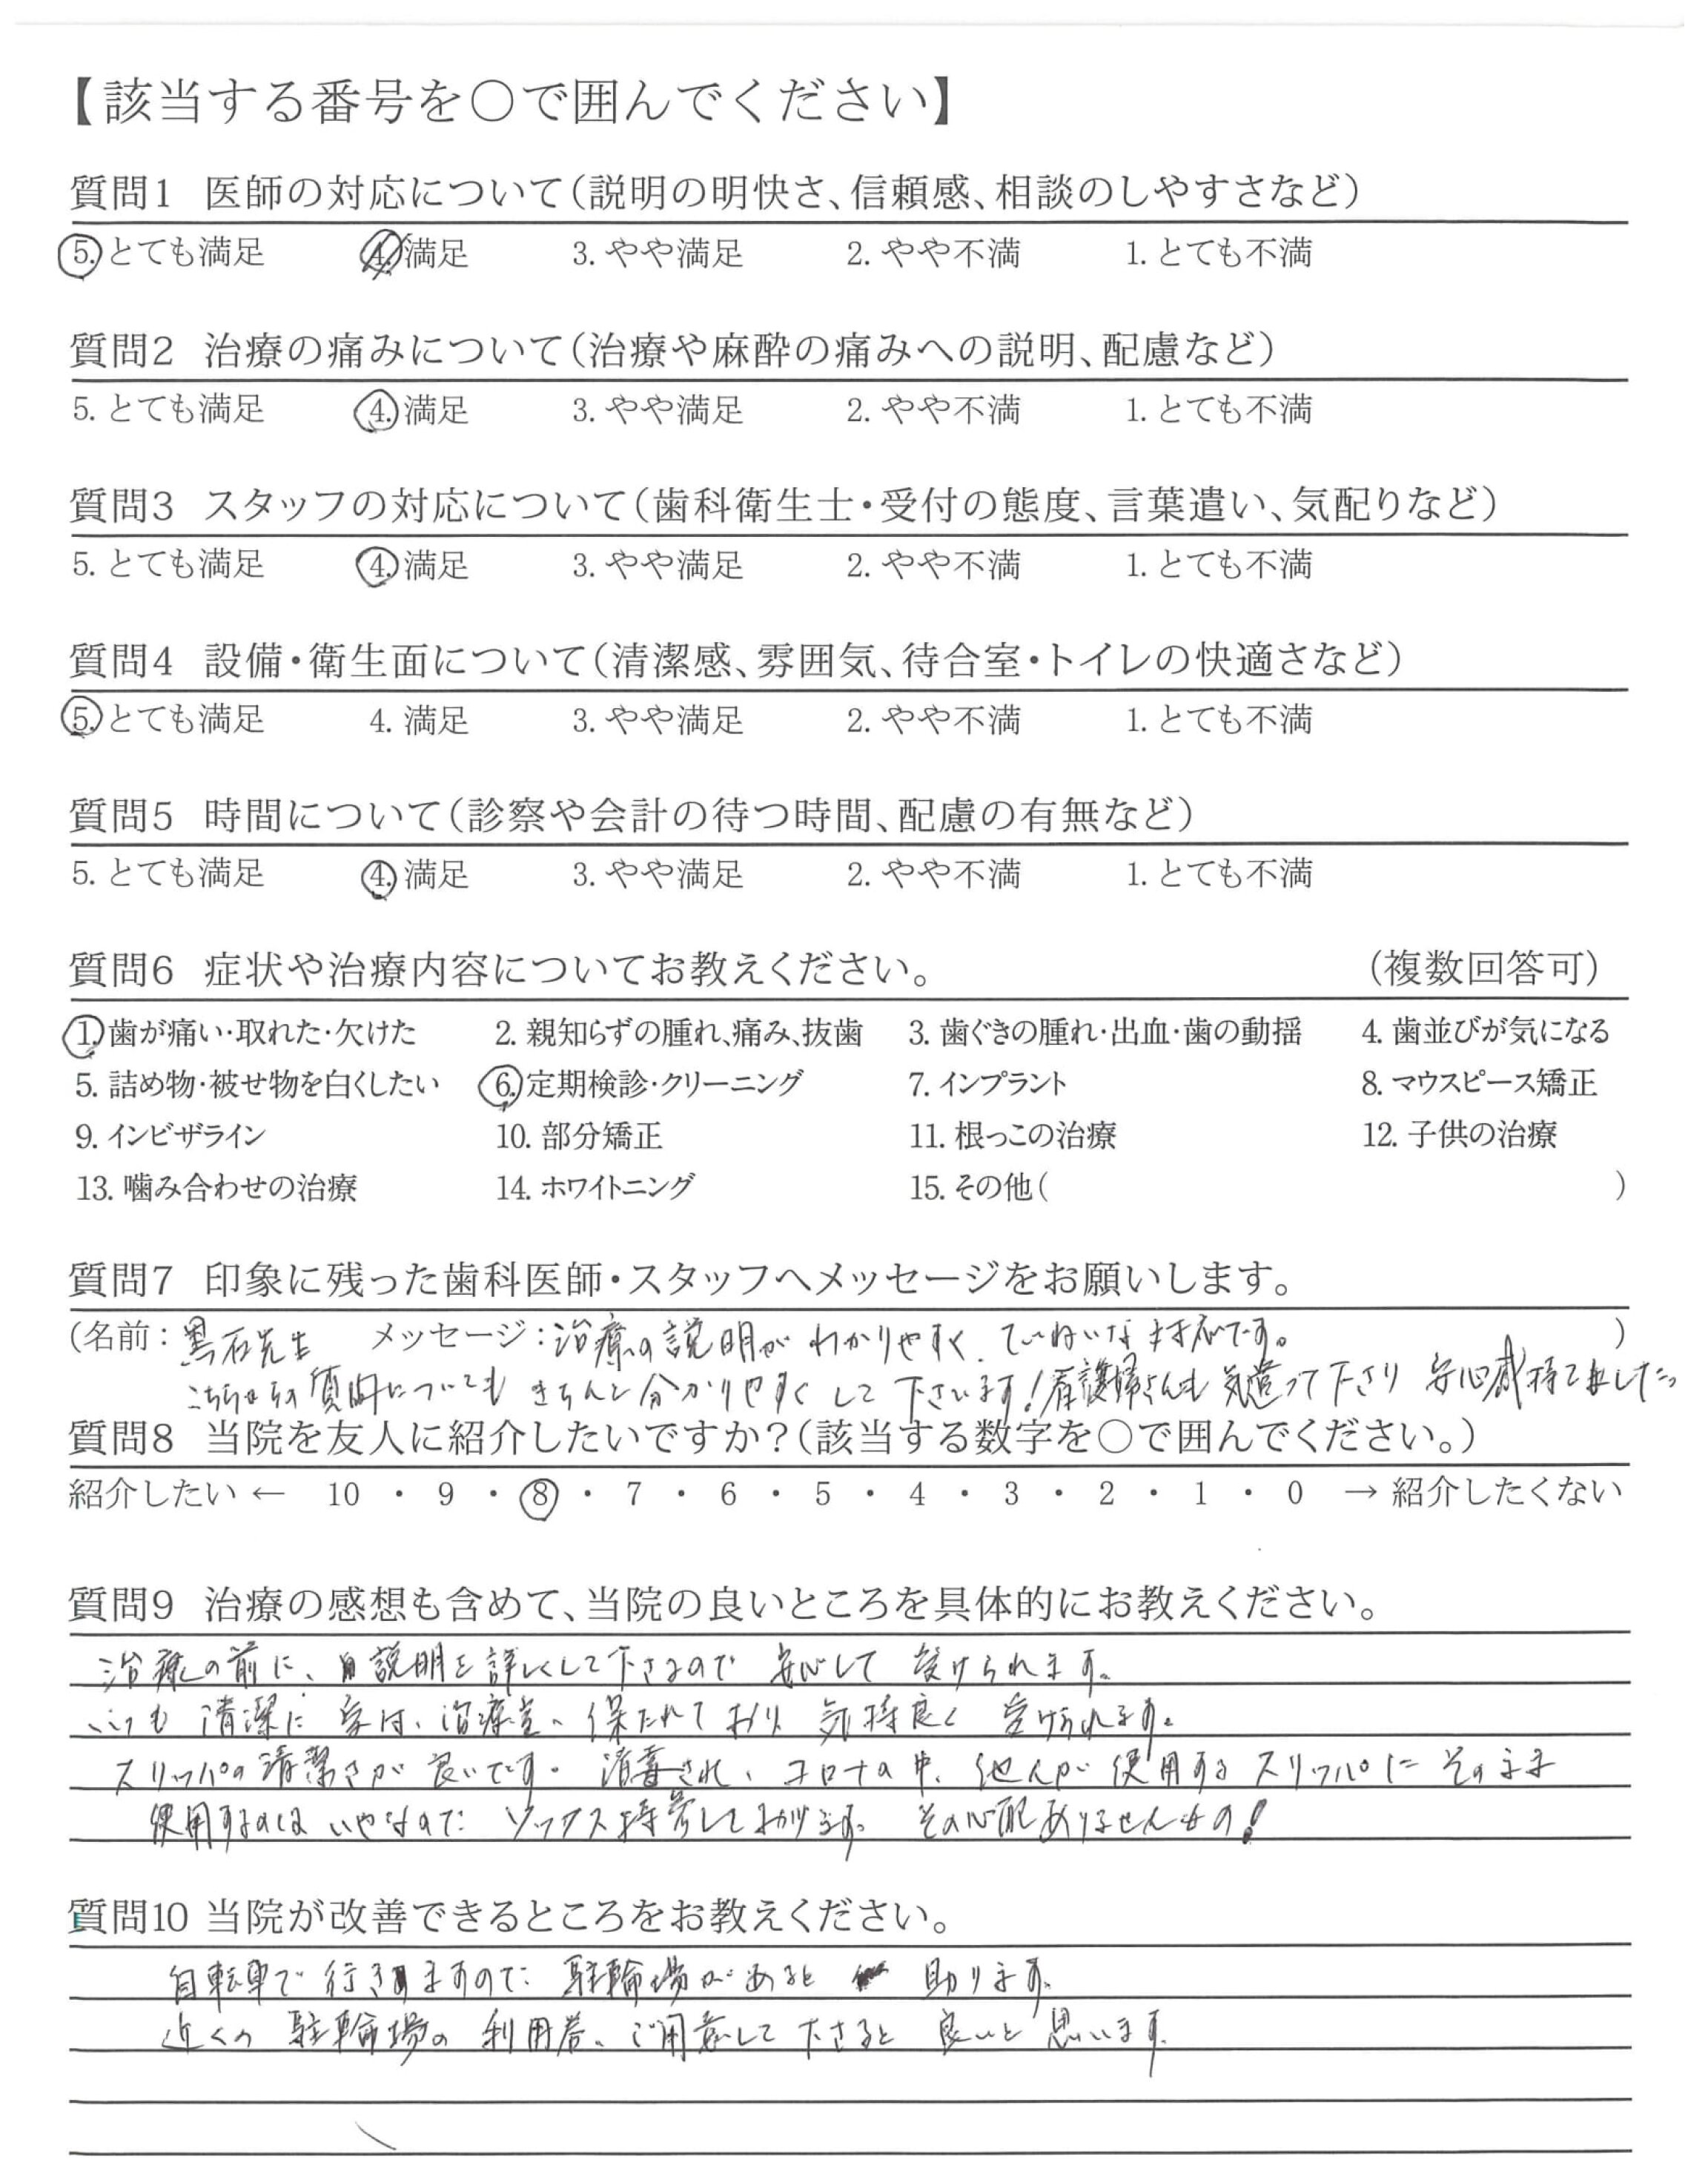 【該当する番号を〇で囲んでください】
質問1 医師の対応について(説明の明快さ、信頼感、相談のしやすさなど)
5. とても満足 4. 満足 3. やや満足 2. やや不満 1. とても不満
質問2 治療の痛みについて(治療や麻酔の痛みへの説明、配慮など)
5. とても満足 4. 満足 3. やや満足 2. やや不満 1. とても不満
質問3 スタッフの対応について(歯科衛生士・受付の態度、言葉遣い、気配りなど)
5. とても満足 4. 満足 3. やや満足 2. やや不満 1. とても不満
質問4 設備・衛生面について(清潔感、雰囲気、待合室・トイレの快適さなど)
5. とても満足 4. 満足 3. やや満足 2. やや不満 1. とても不満
質問5 時間について(診察や会計の待つ時間、配慮の有無など)
5. とても満足 4. 満足 3. やや満足 2. やや不満 1. とても不満
質問6 症状や治療内容についてお教えください。 (複数回答可)
1. 歯が痛い・取れた・欠けた 2. 親知らずの腫れ、痛み、抜歯 3. 歯ぐきの腫れ・出血・歯の動揺 4. 歯並びが気になる
5. 詰め物・被せ物を白くしたい 6. 定期検診・クリーニング 7. インプラント 8. マウスピース矯正
9. インビザライン 10. 部分矯正 11. 根っこの治療 12. 子供の治療
13. 噛み合わせの治療 14. ホワイトニング 15. その他( )
質問7 印象に残った歯科医師・スタッフへメッセージをお願いします。
(名前: 黒石先生 メッセージ: 治療の説明がわかりやすく、ていねいな対応です。 )
こちらからの質問についてもきちんと分かりやすくして下さいます!看護婦さんも気遣って下さり安心感持てました。
質問8 当院を友人に紹介したいですか?(該当する数字を〇で囲んでください。)
紹介したい ← 10 ・ 9 ・ 8 ・ 7 ・ 6 ・ 5 ・ 4 ・ 3 ・ 2 ・ 1 ・ 0 → 紹介したくない
質問9 治療の感想も含めて、当院の良いところを具体的にお教えください。
治療の前に、説明を詳しくして下さるので安心して受けられます。
いつも清潔に 治療室 保たれており 気持良く 受けられます。
スリッパの清潔さが良いです。消毒され、コロナの中、他人が使用するスリッパにそのまま
使用するのはいやなので ソックス持参して その心配ありませんもの!
質問10 当院が改善できるところをお教えください。
自転車で行きますので 駐輪場があると 助ります。
近くの駐輪場の利用券、ご用意して下さると良いと思います。